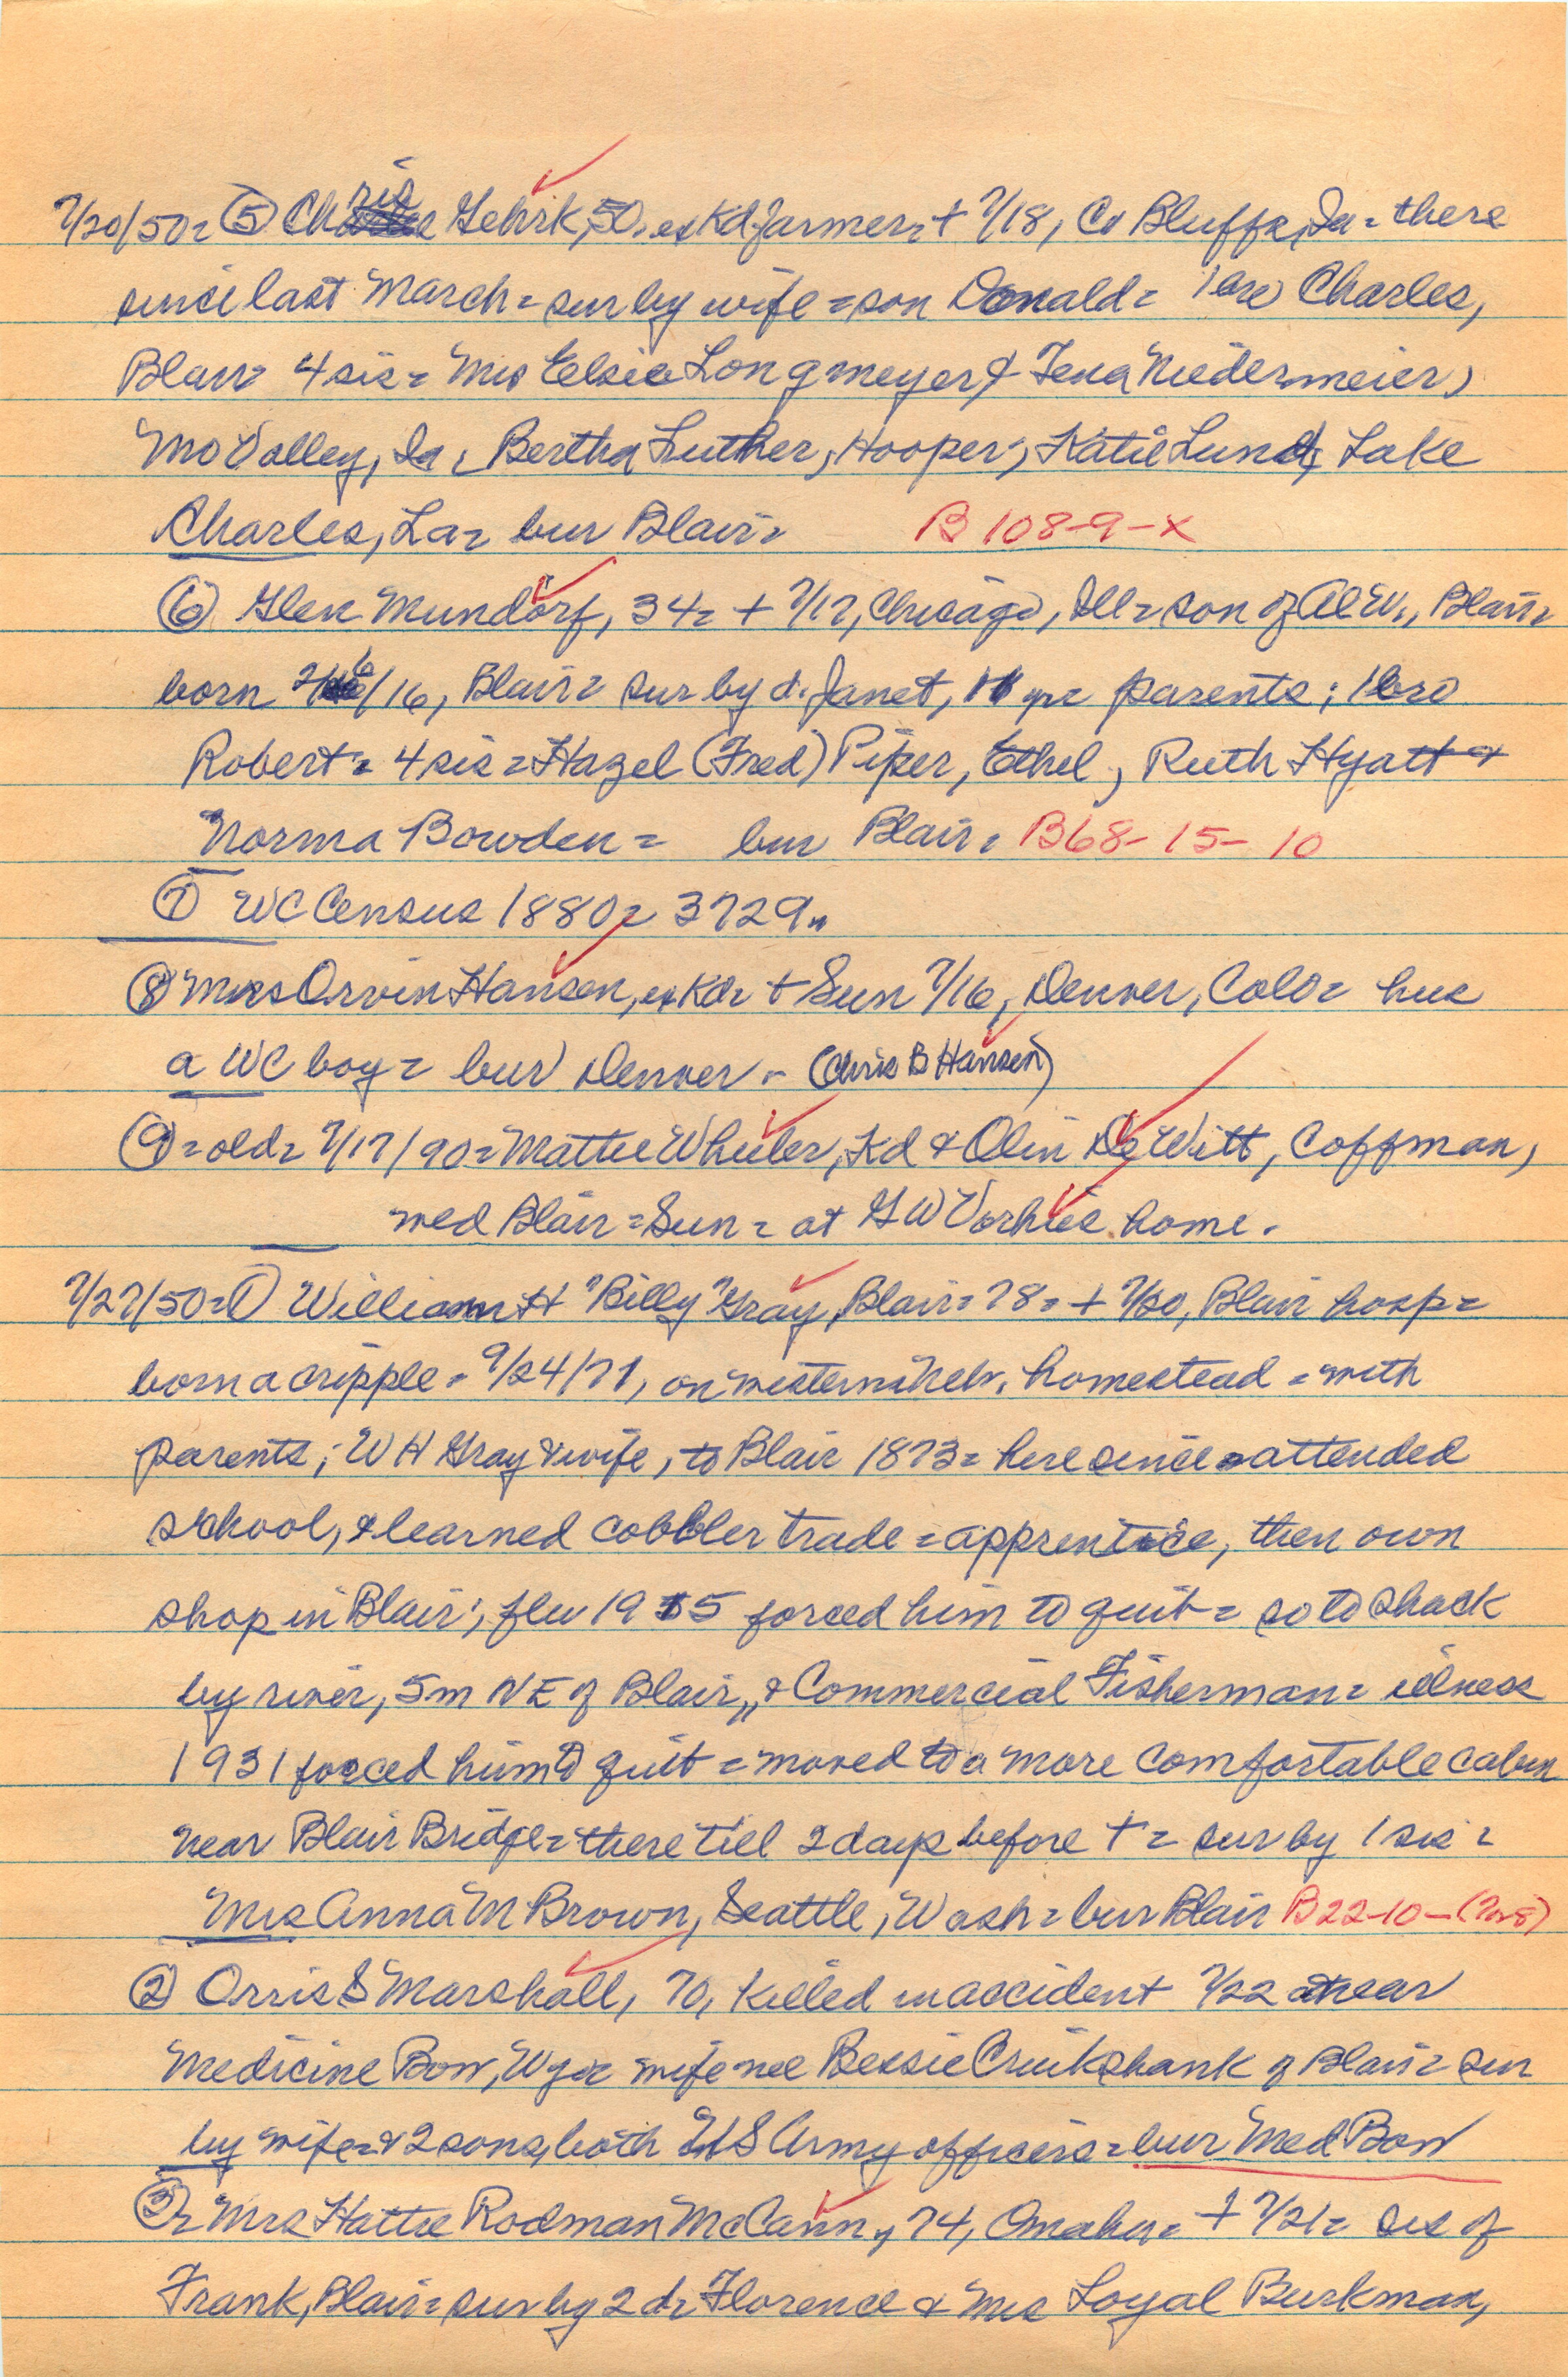 7/20/50= ⑤ Chris Gehrk, 50, ex Kd farmer= + 7/18, Co Bluffs, Ia = there
since last March = sur by wife = son Donald = 1 bro Charles,
Blair= 4 sis = Mrs Elsie Longmeyer & Tena Niedermeier,
Mo Valley, Ia, Bertha Luther, Hooper; Katie Lund, Lake
Charles, La= bur Blair= B 108-9-X
⑥ Glen Mundorf, 34= + 7/17, Chicago, Ill = son of Al W., Blair=
born /16, Blair= sur by d. Janet, yr= parents; 1 bro
Robert = 4 sis = Hazel (Fred) Piper, Ethel, Ruth Hyatt &
Norma Bowden = bur Blair= B68-15-10
⑦ WC Census 1880= 3729"
⑧ Mrs Orvin Hansen, ex Kd= + Sun 7/16, Denver, Colo= hus
a WC boy = bur Denver. - (Chris B Hansen)
⑨ = old= 7/17/90= Mattie Wheeler, Kd & Olin DeWitt, Coffman,
wed Blair = Sun = at G W Vorhies home.
7/27/50= ① William H "Billy" Gray, Blair= 78= + 7/20, Blair hosp=
born a cripple = 9/24/71, on western Nebr. homestead = with
parents; W H Gray & wife, to Blair 1873= here since = attended
school, & learned cobbler trade = apprentice, then own
shop in Blair; flu 19 5 forced him to quit = so to shack
by river, 5m NE of Blair,, & Commercial Fisherman= illness
1931 forced him to quit = moved to a more comfortable cabin
near Blair Bridge= there till 2 days before + = sur by 1 sis =
Mrs Anna M Brown, Seattle, Wash = bur Blair B22-10-
② Orris S Marshall, 70, killed in accident 7/22 near
Medicine Bow, Wyo= wife nee Bessie Cruikshank of Blair= sur
by wife= & 2 sons, both US Army officers = bur Med Bow
③= Mrs Hattie Rodman McCann, 74, Omaha= + 7/21= sis of
Frank, Blair= sur by 2 d= Florence & Mrs Loyal Burkman,